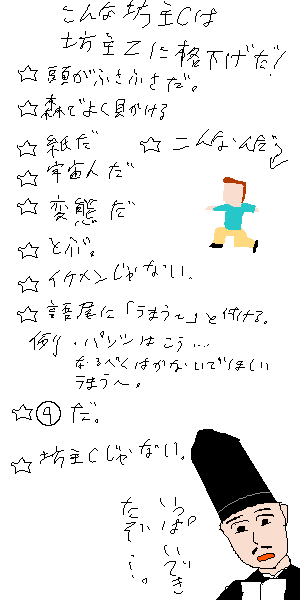 こんな坊主Cは
坊主Zに格下げだ!
☆頭がふさふさだ。
☆森でよく見かける
☆紙だ
☆こんなんだ
☆宇宙人だ
☆変態だ
☆とぶ。
☆イケメンじゃない。
☆語尾に「うまう~」と付ける。
例・パンツはこう…
なるべくはかないでほしい
うまう~。
☆⑨だ。
☆坊主Cじゃない。
いっぱいでき
たぞ…。